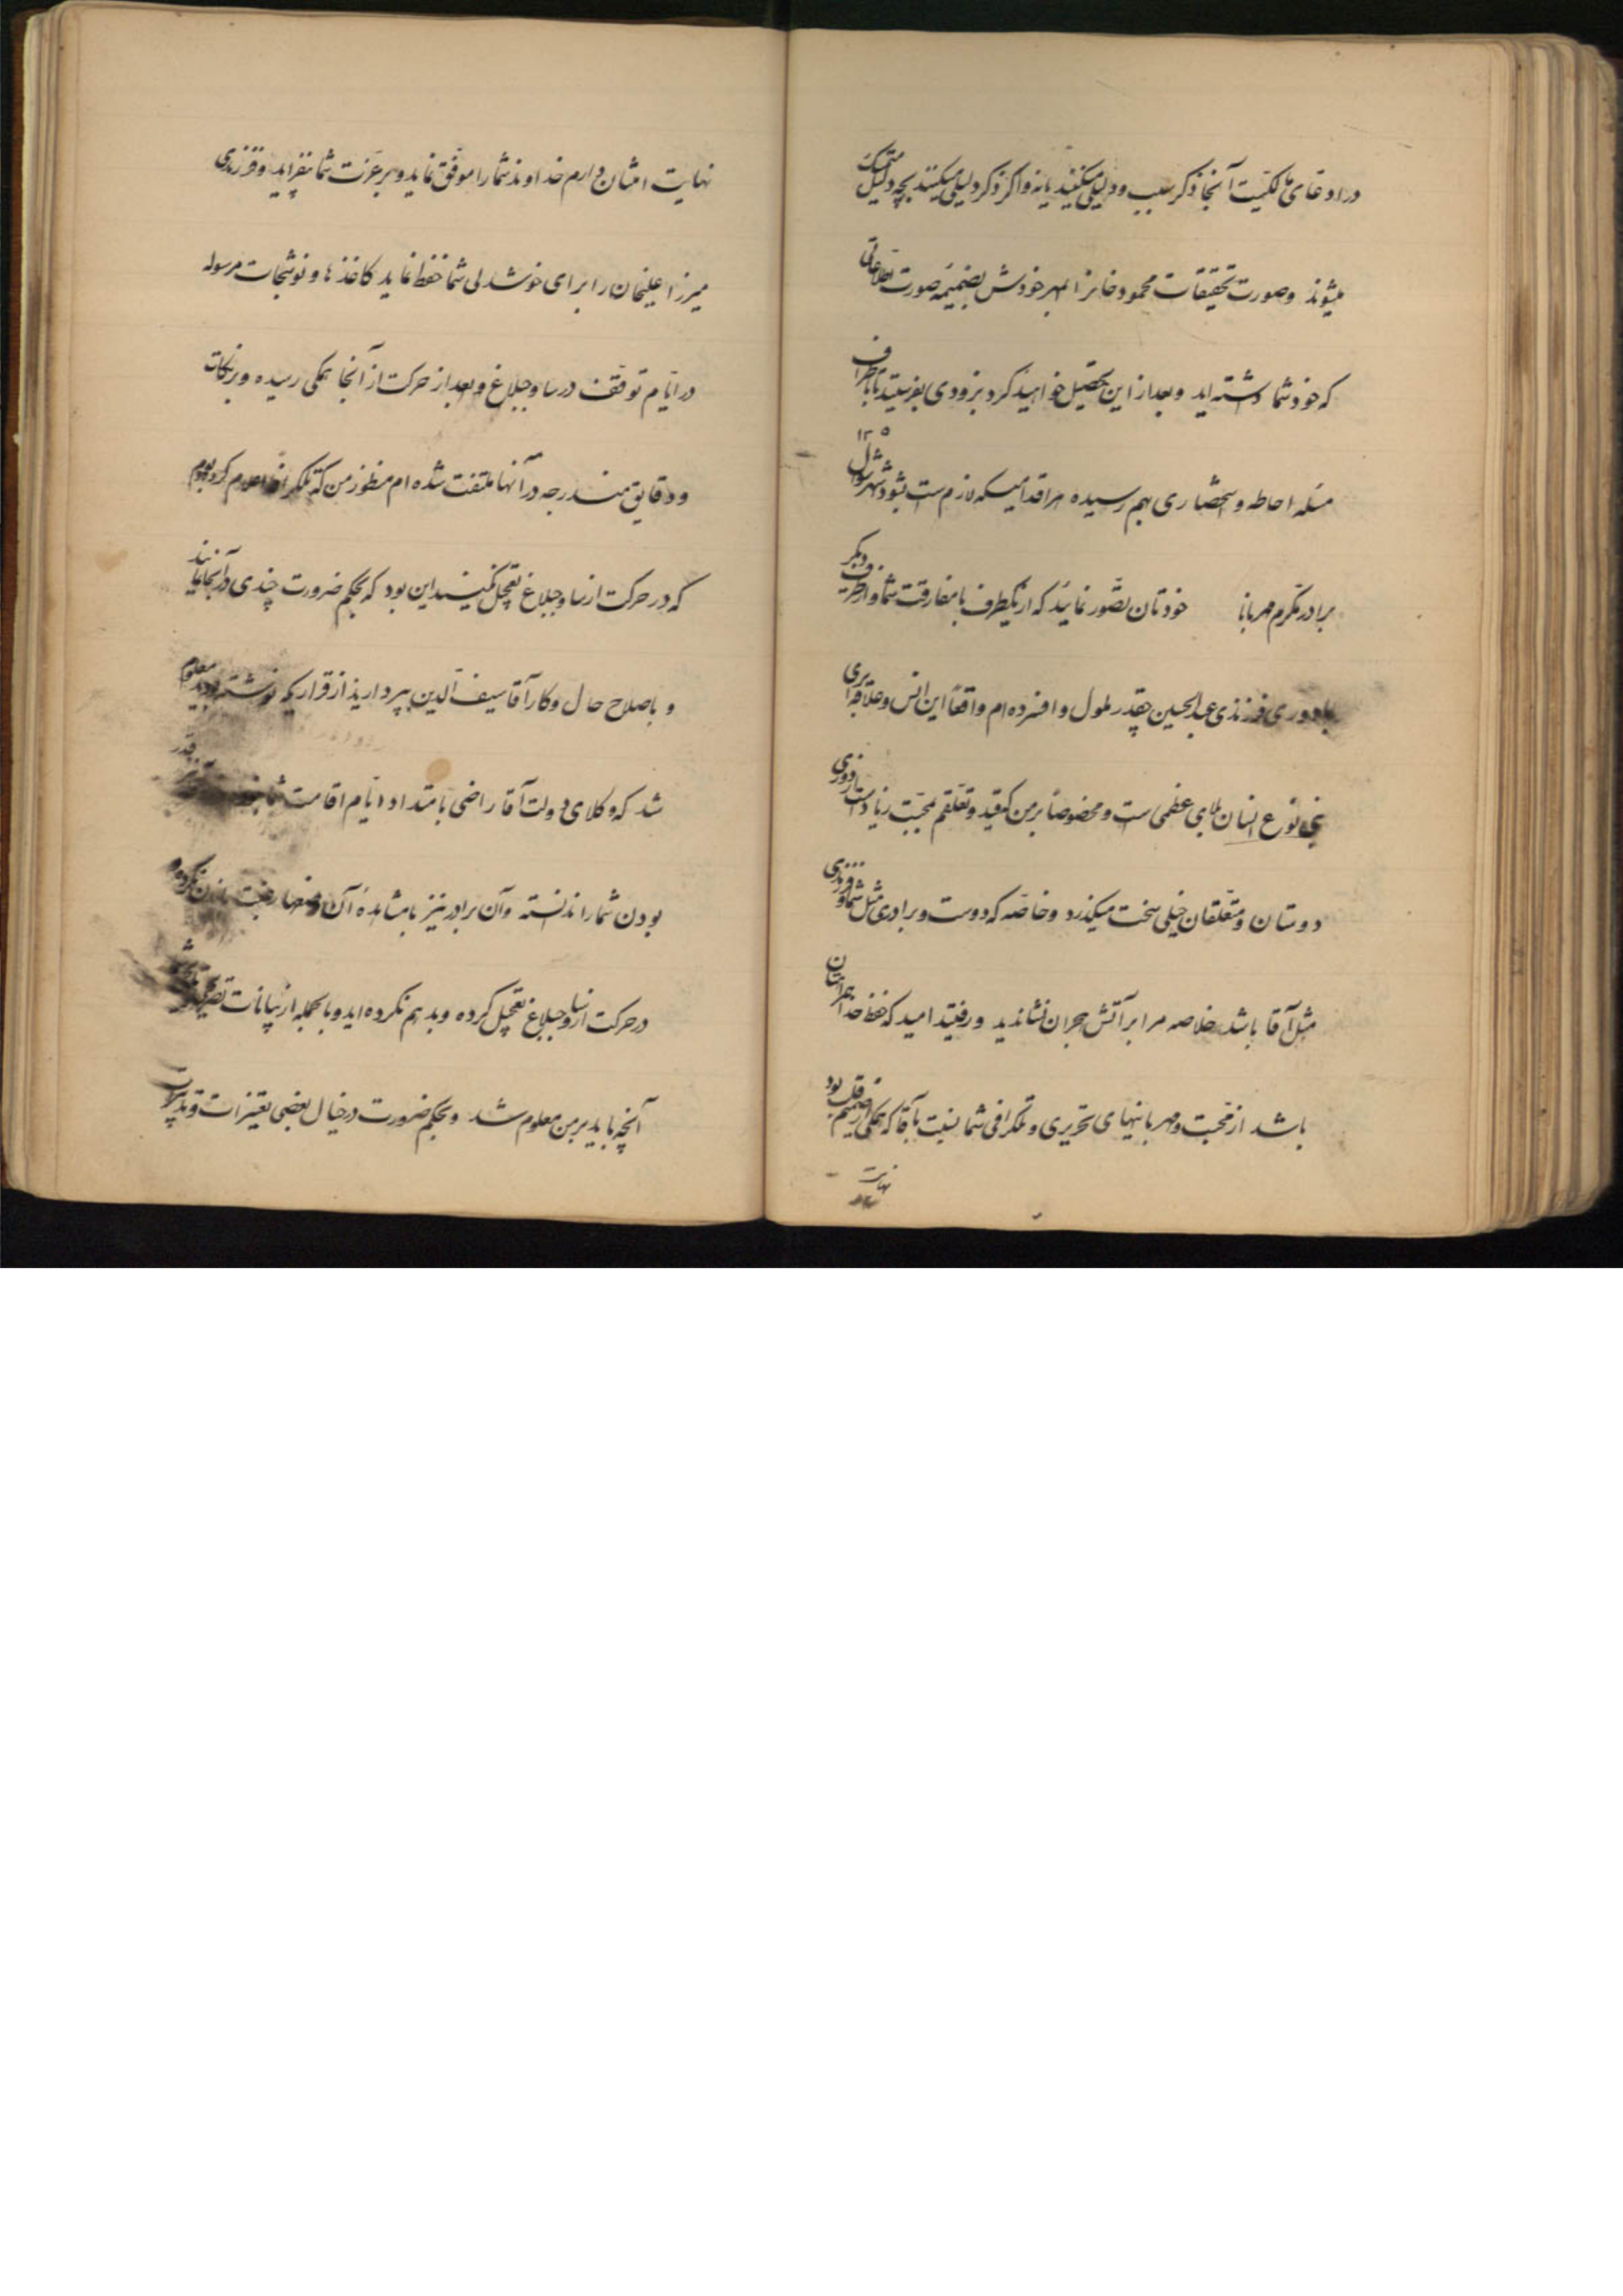 در ادعای مالکیت آنجا ذکر سبب و دلیلی میکنند یا نه و اگر ذکر دلیلی میکنند بچه دلیل متمسک
میشوند و صورت تحقیقات محمود خانرا بمهر خودش بضمیمه صورت اطلاعاتی
که خود شما داشته اید و بعد از این تحصیل خواهید کرد بزودی بفرستید تا باطراف
مسئله احاطه و استحضاری بهم رسیده هر اقدامیکه لازم است بشود شهر شوال ۱۳۰۵
برادر مکرم مهربانا خودتان تصور نمائید که از یکطرف با مفارقت شما و از طرف دیگر
با دوری فرزندی عبدالحسین چقدر ملول و افسرده ام واقعاً این انس و علاقه برای
بنی نوع انسان بلای عظمی است و مخصوصاً بر من که قید و تعلقم بمحبت زیاد است از دوری
دوستان و متعلقان خیلی سخت میگذرد و خاصه که دوست و برادری مثل شما و فرزندی
مثل آقا باشد خلاصه مرا بر آتش هجران نشاندید و رفتید امید که حفظ خدا همراهتان
باشد از محبت و مهربانیهای تحریری و تلگرافی شما نسبت بآقا که همگی از صمیم قلب بود
نهایت
نهایت امتنان دارم خداوند شما را موفق نماید و بر عزت شما بیفزاید و فرزندی
میرزا علیخان را برای خوشدلی شما حفظ نماید کاغذها و نوشتجات مرسوله
در ایام توقف در ساوجبلاغ و بعد از حرکت از آنجا همگی رسیده و بر نکات
و دقایق مندرجه در آنها ملتفت شده ام منظور من که تلگرافاً اعلام کرده بودم
که در حرکت از ساوجبلاغ تعجیل نکنید این بود که بحکم ضرورت چندی در آنجا بمانید
و باصلاح حال و کار آقا سیف الدین بپردازید از قراریکه نوشته بودید معلوم
شد که وکلای دولت آقا راضی بامتداد ایام اقامت شما
بودن شما را ندانسته و آن برادر نیز بمشاهده آن وضعها رغبت بماندن نکرده و
در حرکت از ساوجبلاغ تعجیل کرده و بد هم نکرده اید و بالجمله از بیانات
آنچه باید بر من معلوم شد و بحکم ضرورت در خیال بعضی تغییرات و تدبیرات